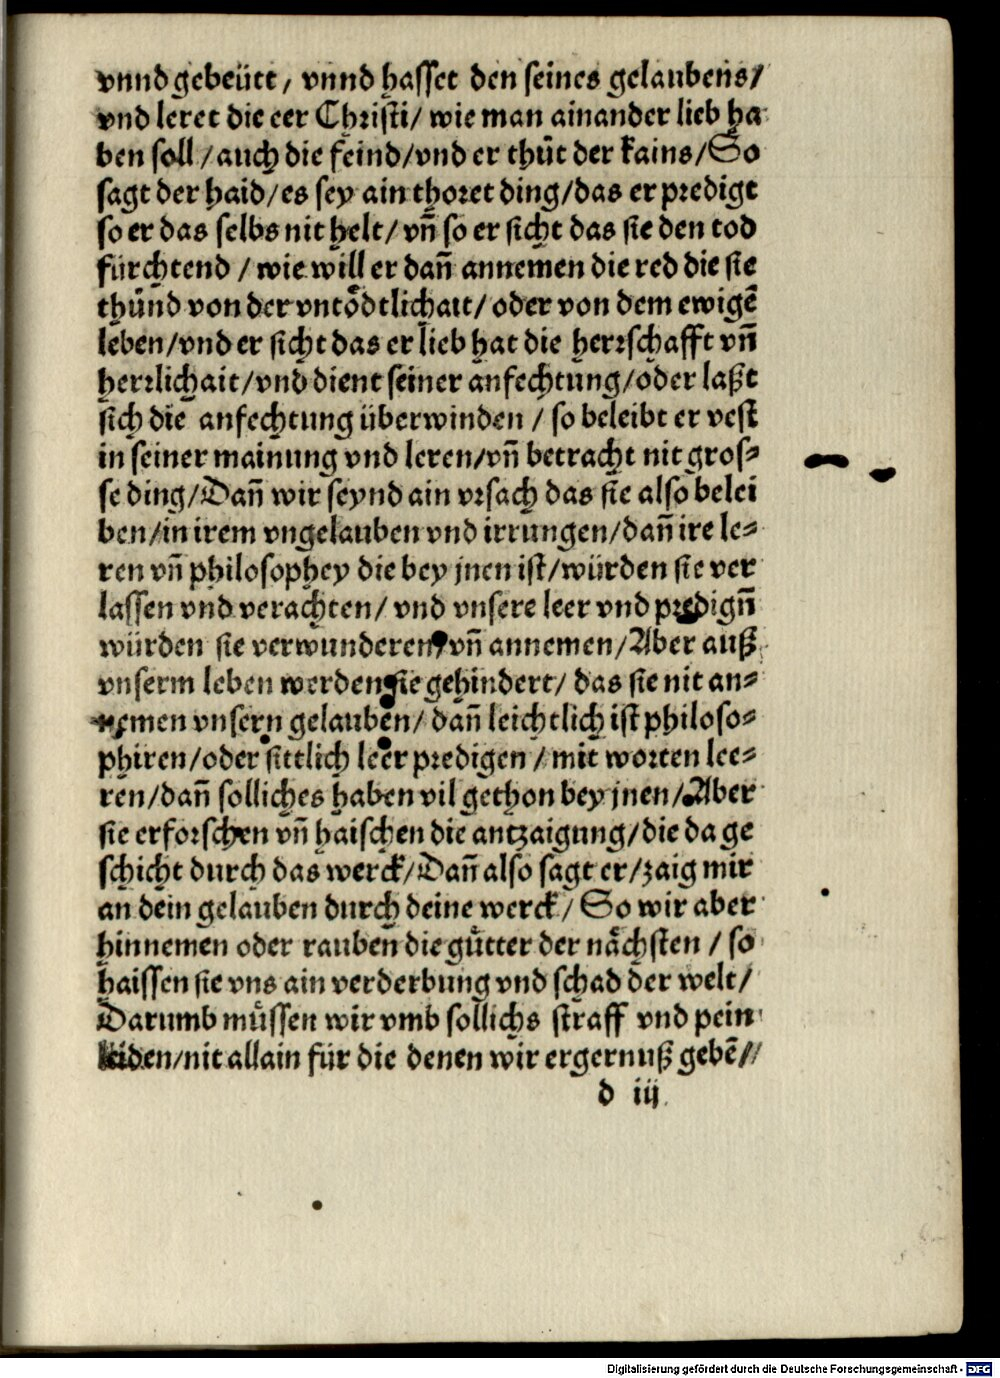 vnnd gebeütt / vnnd hasset den seines gelaubens /
vnd leret die eer Christi / wie man ainander lieb ha
ben soll / auch die feind / vnd er thůt der kains / So
sagt der haid / es sey ain thoret ding / das er predigt
so er das selbs nit helt / vñ so er sicht das sie den tod
fürchtend / wie will er dañ annemen die red die sie
thůnd von der vntödtlichait / oder von dem ewigē
leben / vnd er sicht das er lieb hat die herrschafft vñ
herrlichait / vnd dient seiner anfechtung / oder laßt
sich die anfechtung überwinden / so beleibt er vest
in seiner mainung vnd leren / vñ betracht nit gros⸗
se ding / Dañ wir seynd ain vrsach das sie also belei
ben / in irem vngelauben vnd irrungen / dañ ire le⸗
ren vñ philosophey die bey jnen ist / würden sie ver
lassen vnd verachten / vnd vnsere leer vnd predigñ
würden sie verwunderen / vñ annemen / Aber auß
vnserm leben werden sie gehindert / das sie nit an⸗
nemen vnsern gelauben / dañ leichtlich ist philoso⸗
phiren / oder sittlich leer predigen / mit worten lee⸗
ren / dañ solliches haben vil gethon bey jnen / Aber
sie erforschen vñ haischen die antzaigung / die da ge
schicht durch das werck / Dañ also sagt er / zaig mir
an dein gelauben durch deine werck / So wir aber
hinnemen oder rauben die gůtter der nächsten / so
haissen sie vns ain verderbung vnd schad der welt /
Darumb müssen wir vmb sollichs straff vnd pein
leiden / nit allain für die denen wir ergernuß gebē //
d iij
Digitalisierung gefördert durch die Deutsche Forschungsgemeinschaft - DFG